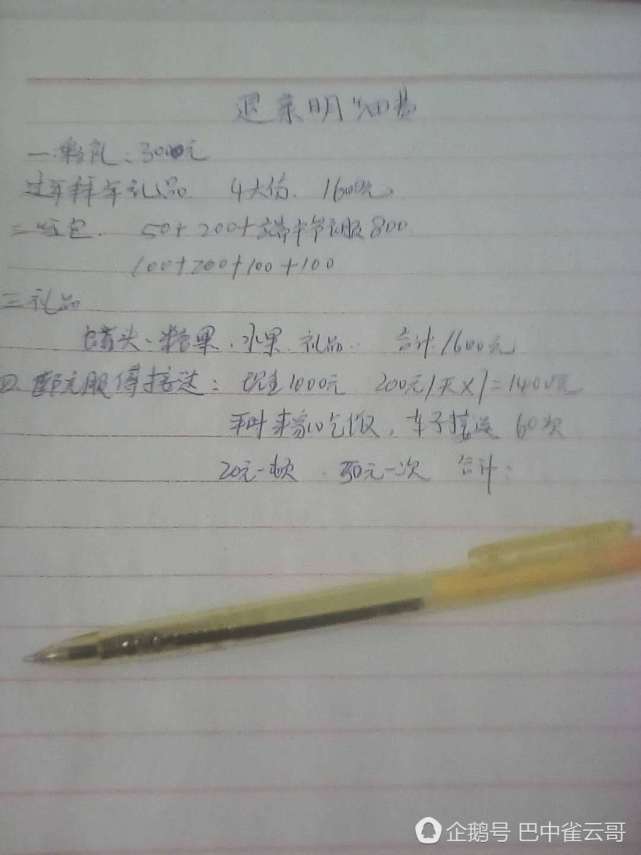 退亲明细费
一.彩礼:3000元
过年拜年礼品 4大份. 1600元
二红包. 50+200+ 衣服800
100+200+100+100
三礼品
罐头、糖果、水果、礼品. 合计1600元
四. 服 接送: 现金1000元 200元/天X)=1400元
平时来家吃饭,车子接送 60次
20元一次 30元一次 合计:
企鹅号 巴中雀云哥